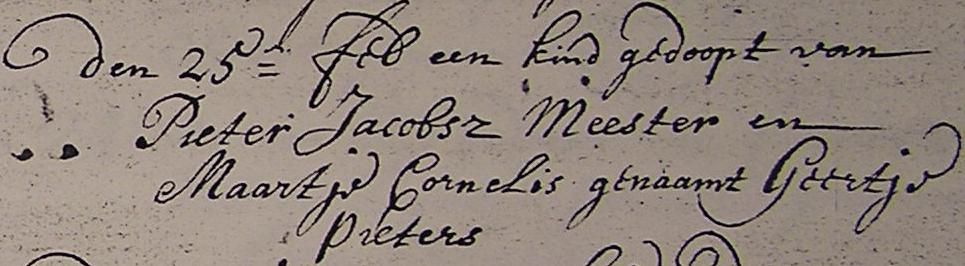 den 25= feb een kind gedoopt van
Pieter Jacobsz Meester en
Maartje Cornelis genaamt Geertje
Pieters